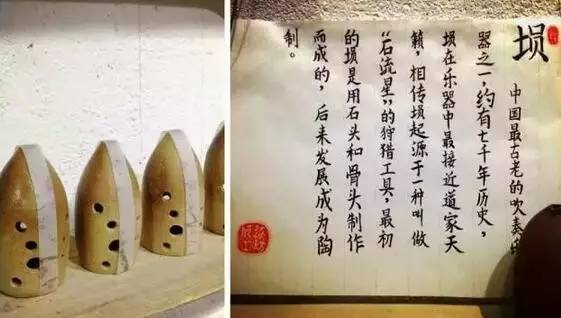 埙
中国最古老的吹奏乐
器之一，约有七千年历史，
埙在乐器中最接近道家天
籁，相传埙起源于一种叫做
“石流星”的狩猎工具，最初
的埙是用石头和骨头制作
而成的，后来发展成为陶
制。